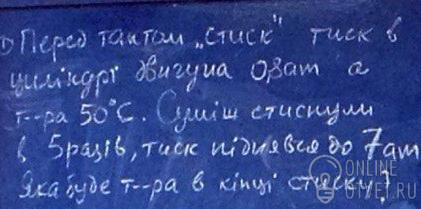 1) Перед тактом „стиск" тиск в
циліндрі двигуна 0,8ат а
т--ра 50°С. Суміш стиснули
в 5разів, тиск піднявся до 7ат
Яка буде т--ра в кінці стиску?
ONLINE
OTVET.RU